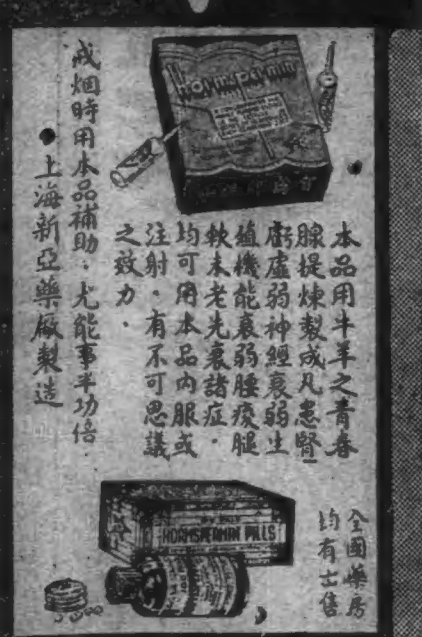 Hormspermin
本品用牛羊之青春
腺提煉製成凡患腎
虧虛弱神經衰弱生
殖機能衰弱腰痠腿
軟未老先衰諸症．
均可用本品內服或
注射．有不可思議
之效力．
戒烟時用本品補助．尤能事半功倍．
●上海新亞藥廠製造
HORMSPERMIN PILLS
全國藥房
均有出售